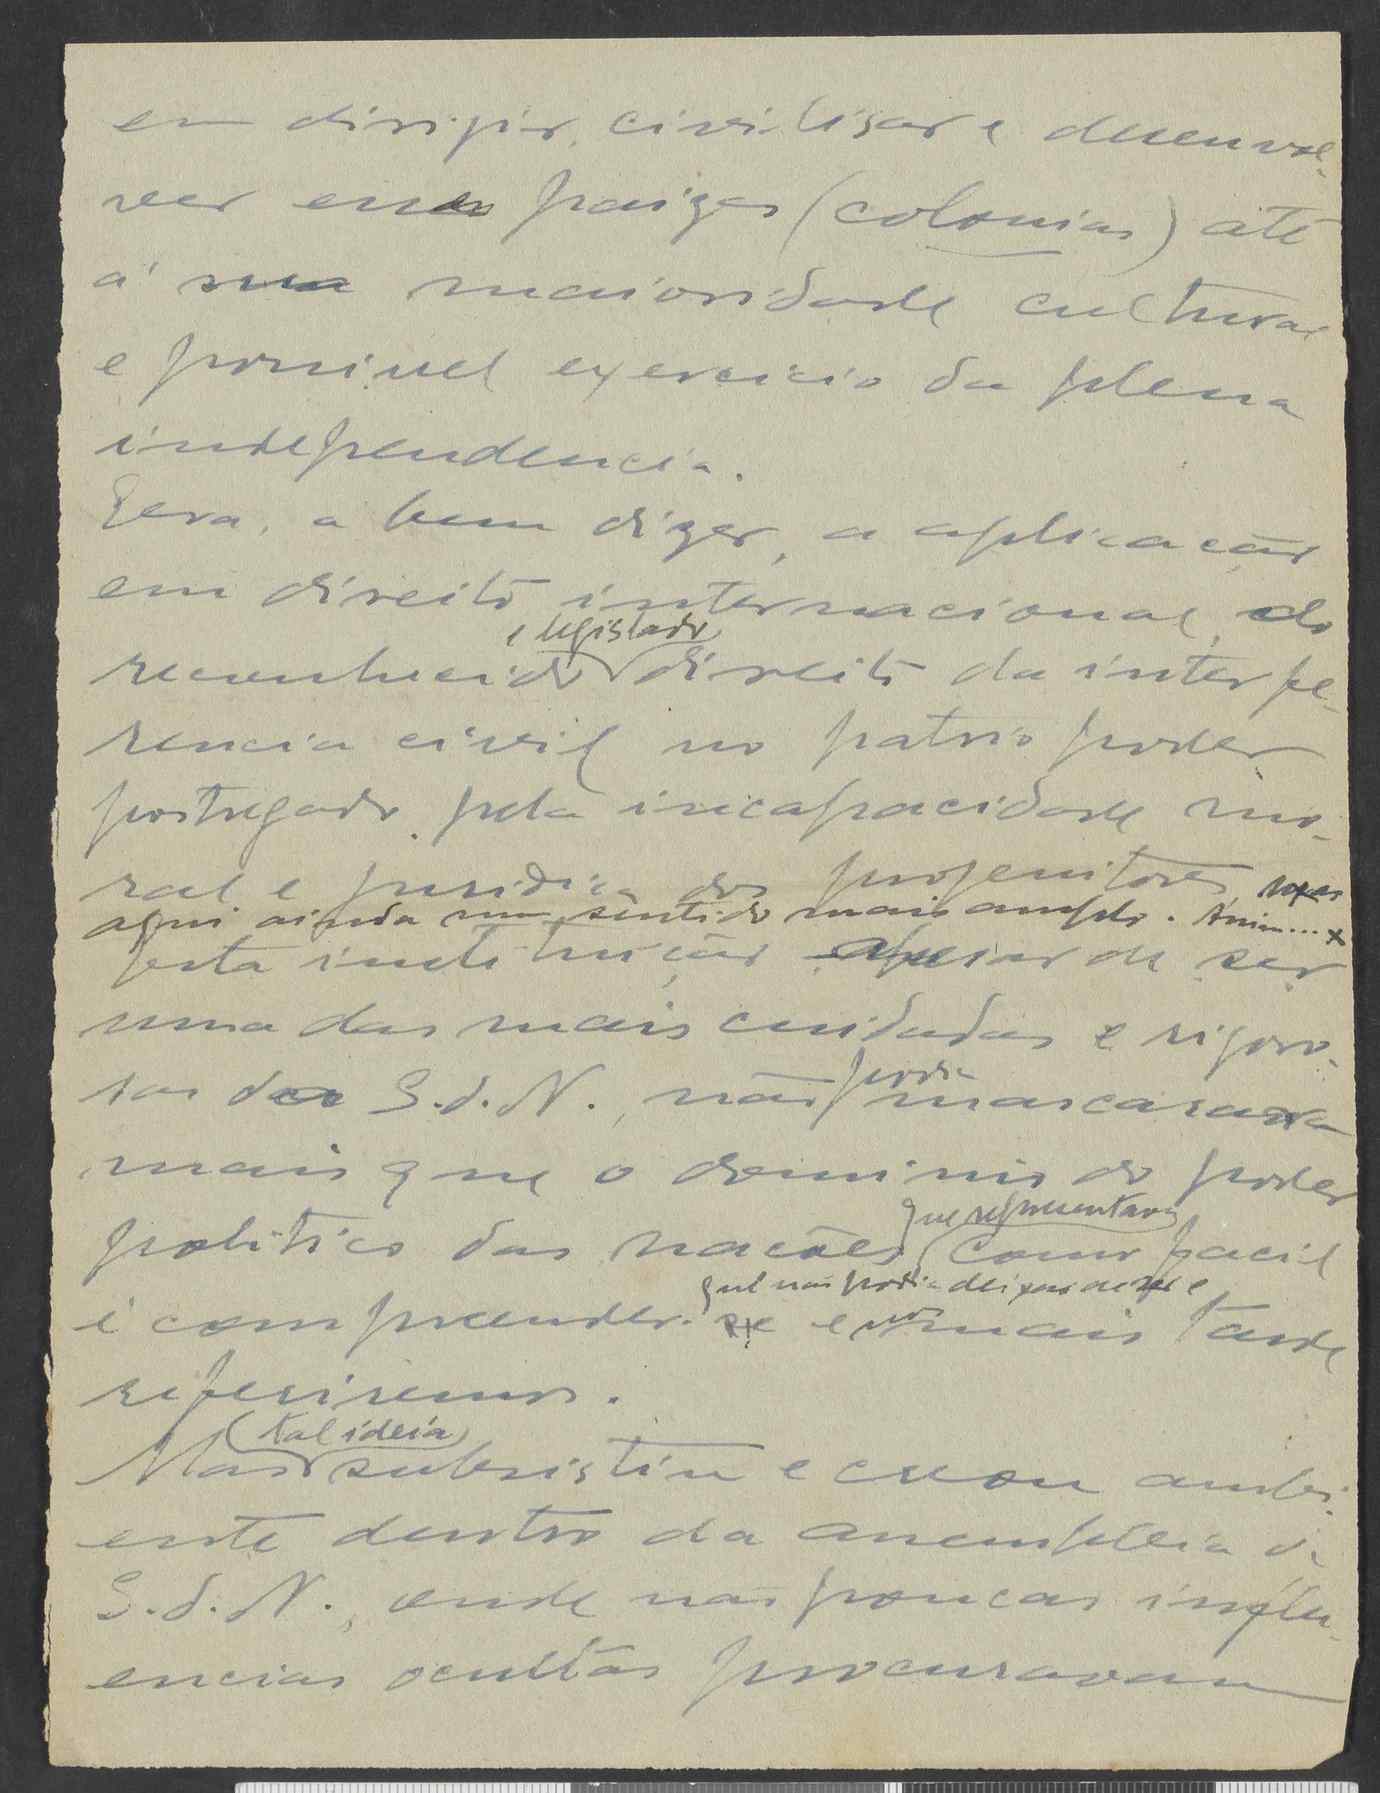 em dirigir, civilisar e desenvol-
ver esses paizes (colonias) até
á sua maioridade cultural
e possivel exercicio da plena
independencia.
Era, a bem dizer, a aplicação
em direito internacional, do
e legislado
reconhecido direito da interfe-
rencia civil no patrio poder
postergado pela incapacidade mo-
ral e juridica dos progenitores, mas
aqui ainda num sentido mais amplo. Assim... x
esta instituição apesar de ser
uma das mais cuidadas e rigoro-
sas da S.d.N., não
podia
mascarava
mais que o dominio do poder
que representava
politico das nações como facil
que não podia deixar de ser e
é compreender-se e nos mais tarde
referiremos.
tal ideia
Mas subsistiu e creou ambi-
ente dentro da assembleia da
S.d.N., onde não poucas influ-
encias ocultas procuravam